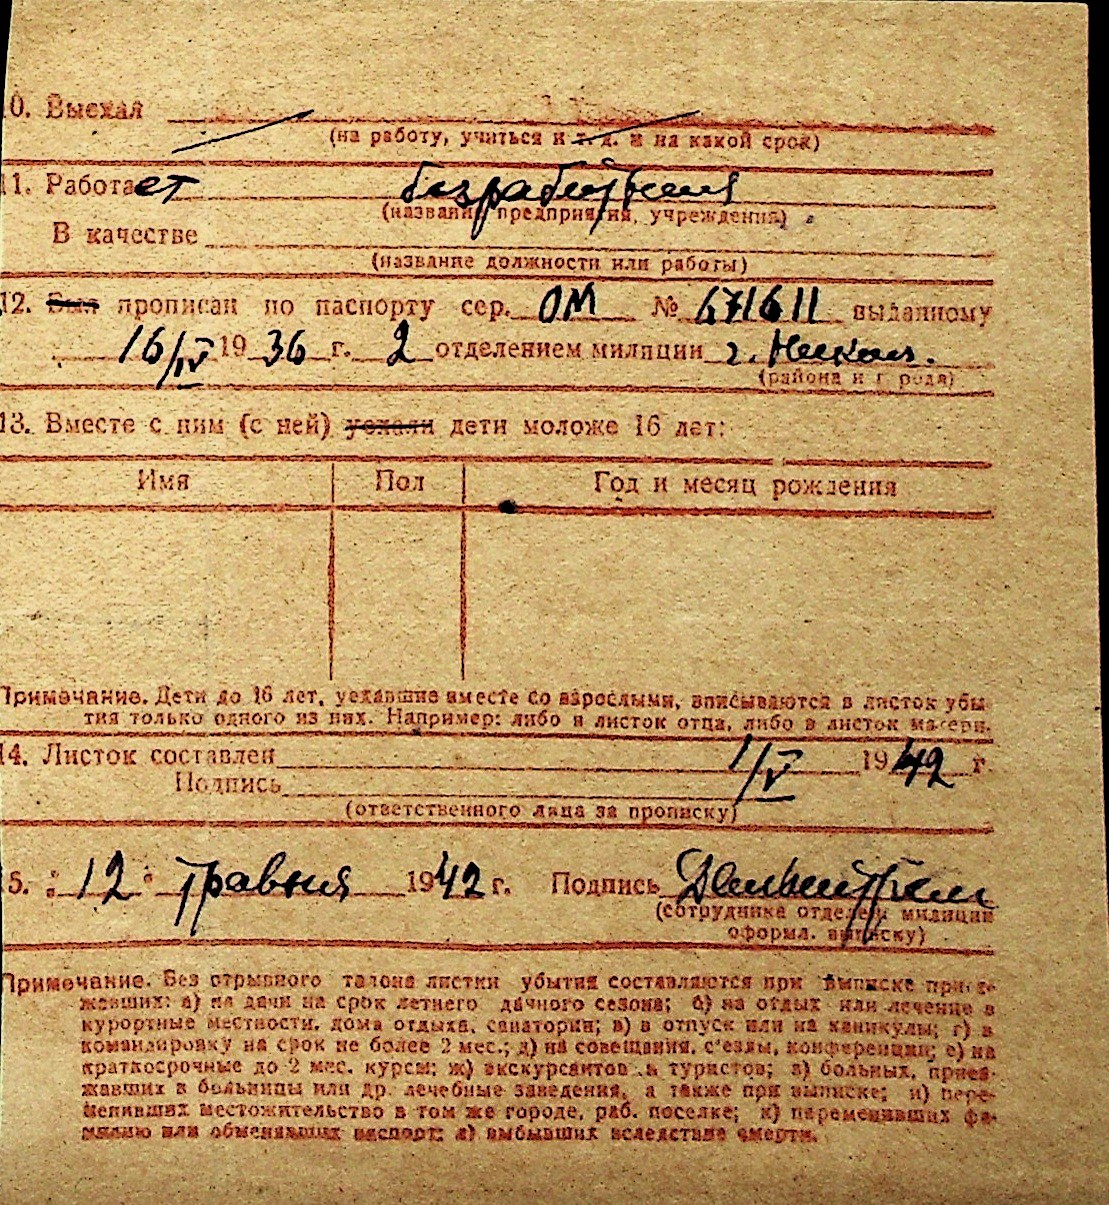 0. Выехал
(на работу, учиться и т. д. и на какой срок)
11. Работает
(название предприятия, учреждения)
В качестве
(название должности или работы)
12. Был прописан по паспорту сер. ОМ № 671611 выданному
16/IV 1936 г. 2 отделением милиции г.
(района и города)
13. Вместе с ним (с ней) уехали дети моложе 16 лет:
Имя Пол Год и месяц рождения
Примечание. Дети до 16 лет, уехавшие вместе со взрослыми, вписываются в листок убы-
тия только одного из них. Например: либо в листок отца, либо в листок матери.
14. Листок составлен 1/V 1942 г.
Подпись
(ответственного лица за прописку)
5. "12" травня 1942 г. Подпись
(сотрудника отделен. милиции
оформл. выписку)
Примечание. Без отрывного талона листки убытия составляются при выписке приез-
жавших: а) на дачи на срок летнего дачного сезона; б) на отдых или лечение в
курортные местности, дома отдыха, санатории; в) в отпуск или на каникулы; г) в
командировку на срок не более 2 мес.; д) на совещания, с'езды, конференции; е) на
краткосрочные до 2 мес. курсы; ж) экскурсантов и туристов; з) больных, приез-
жавших в больницы или др. лечебные заведения, а также при выписке; и) пере-
менивших местожительство в том же городе, раб. поселке; к) переменивших фа-
милию или обменявших паспорт; л) выбывших вследствие смерти.